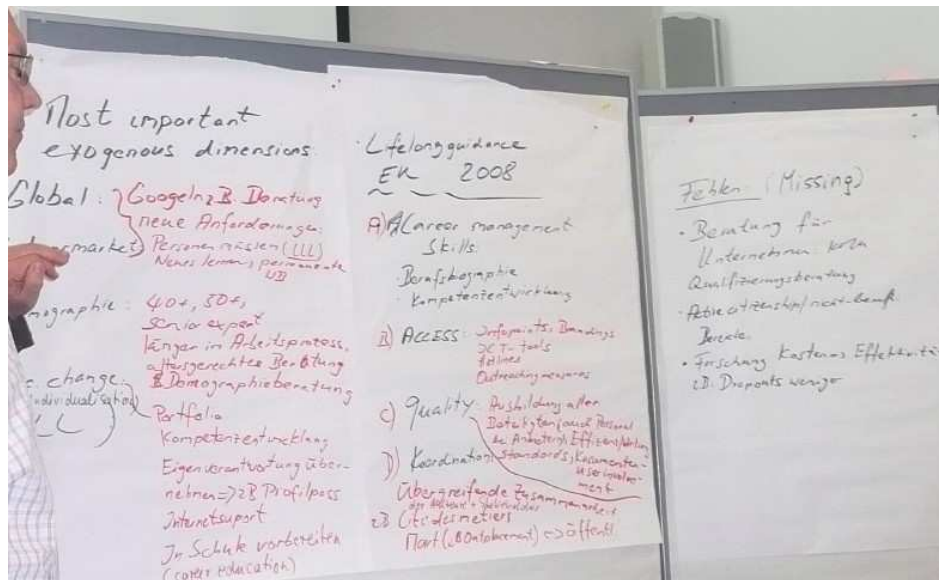 Most important
exogenous dimensions
Global: Googeln z.B. Beratung
neue Anforderungen:
market Personen müssen (LLL)
Neues lernen, permanente
WB
mographie: 40+, 50+,
Senior expert
länger in Arbeitsprozess,
altersgerechtes Beratung
Demographieberatung
change:
(individualisation)
LL
Portfolio
Kompetenzentwicklung
Eigenverantwortung über-
nehmen => z.B. Profilpass
Internetsuport
In Schule vorbereiten
(career education)
Lifelong guidance
EK 2008
A) Career management
Skills:
Berufsbiographie
Kompetenzentwicklung
B) ACCESS: Infopoints, Brandings
ICT-tools
Outreaching measures
C) Quality: Ausbildung aller
Beteiligten (auch Personal
Effizient
D) Koordination, standards, Konsumenten-
userinvolve-
ment
Übergreifende Zusammenarbeit
zB Cité des metiers
öffentl.
Fehlen (Missing)
• Beratung für
Unternehmen:
Qualifizierungsberatung
• Active citizenship/nicht-berufl.
Bereiche.
• Forschung Kosten vs Effektivität
zB. Dropouts weniger